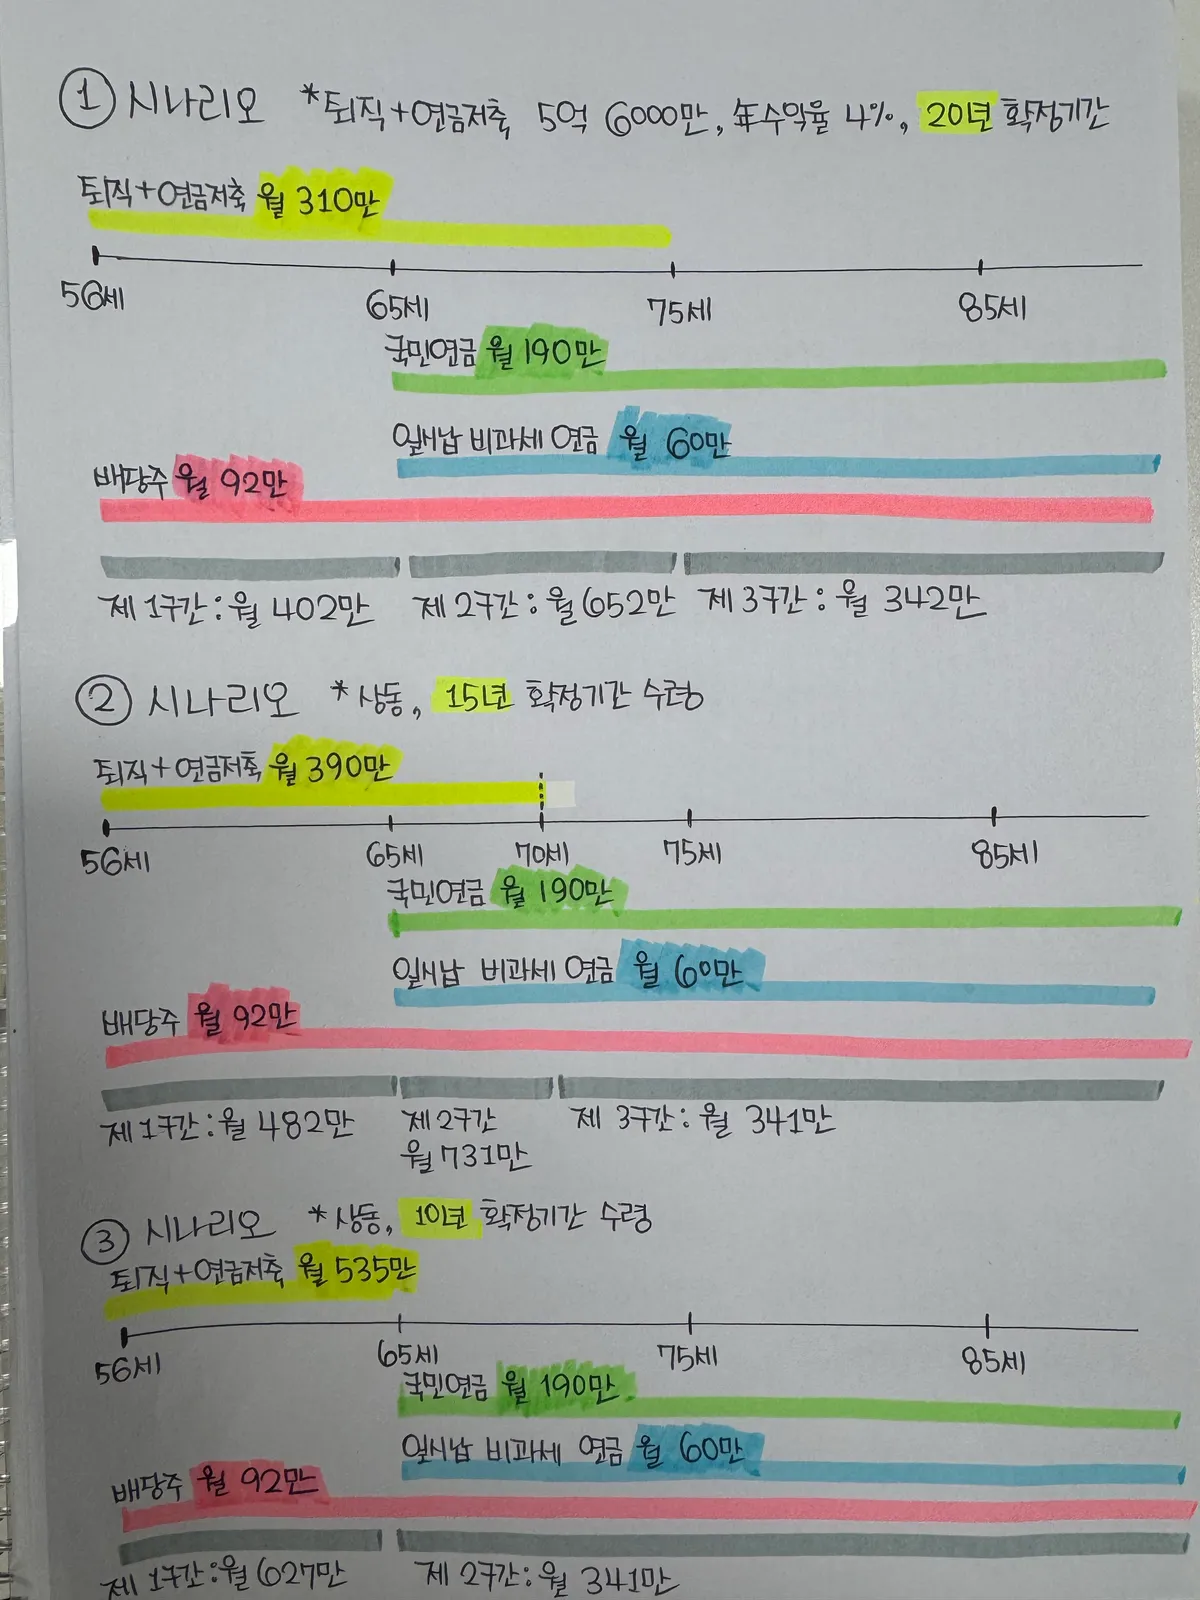 ① 시나리오 *퇴직+연금저축 5억 6000만, 年수익율 4%, 20년 확정기간
퇴직+연금저축 월 310만
56세 65세 75세 85세
국민연금 월 190만
일시납 비과세 연금 월 60만
배당주 월 92만
제 1구간 : 월 402만 제 2구간 : 월 652만 제 3구간 : 월 342만
② 시나리오 *상동, 15년 확정기간 수령
퇴직+연금저축 월 390만
56세 65세 70세 75세 85세
국민연금 월 190만
일시납 비과세 연금 월 60만
배당주 월 92만
제 1구간 : 월 482만 제 2구간 제 3구간 : 월 341만
월 731만
③ 시나리오 *상동, 10년 확정기간 수령
퇴직+연금저축 월 535만
56세 65세 75세 85세
국민연금 월 190만
일시납 비과세 연금 월 60만
배당주 월 92만
제 1구간 : 월 627만 제 2구간 : 월 341만